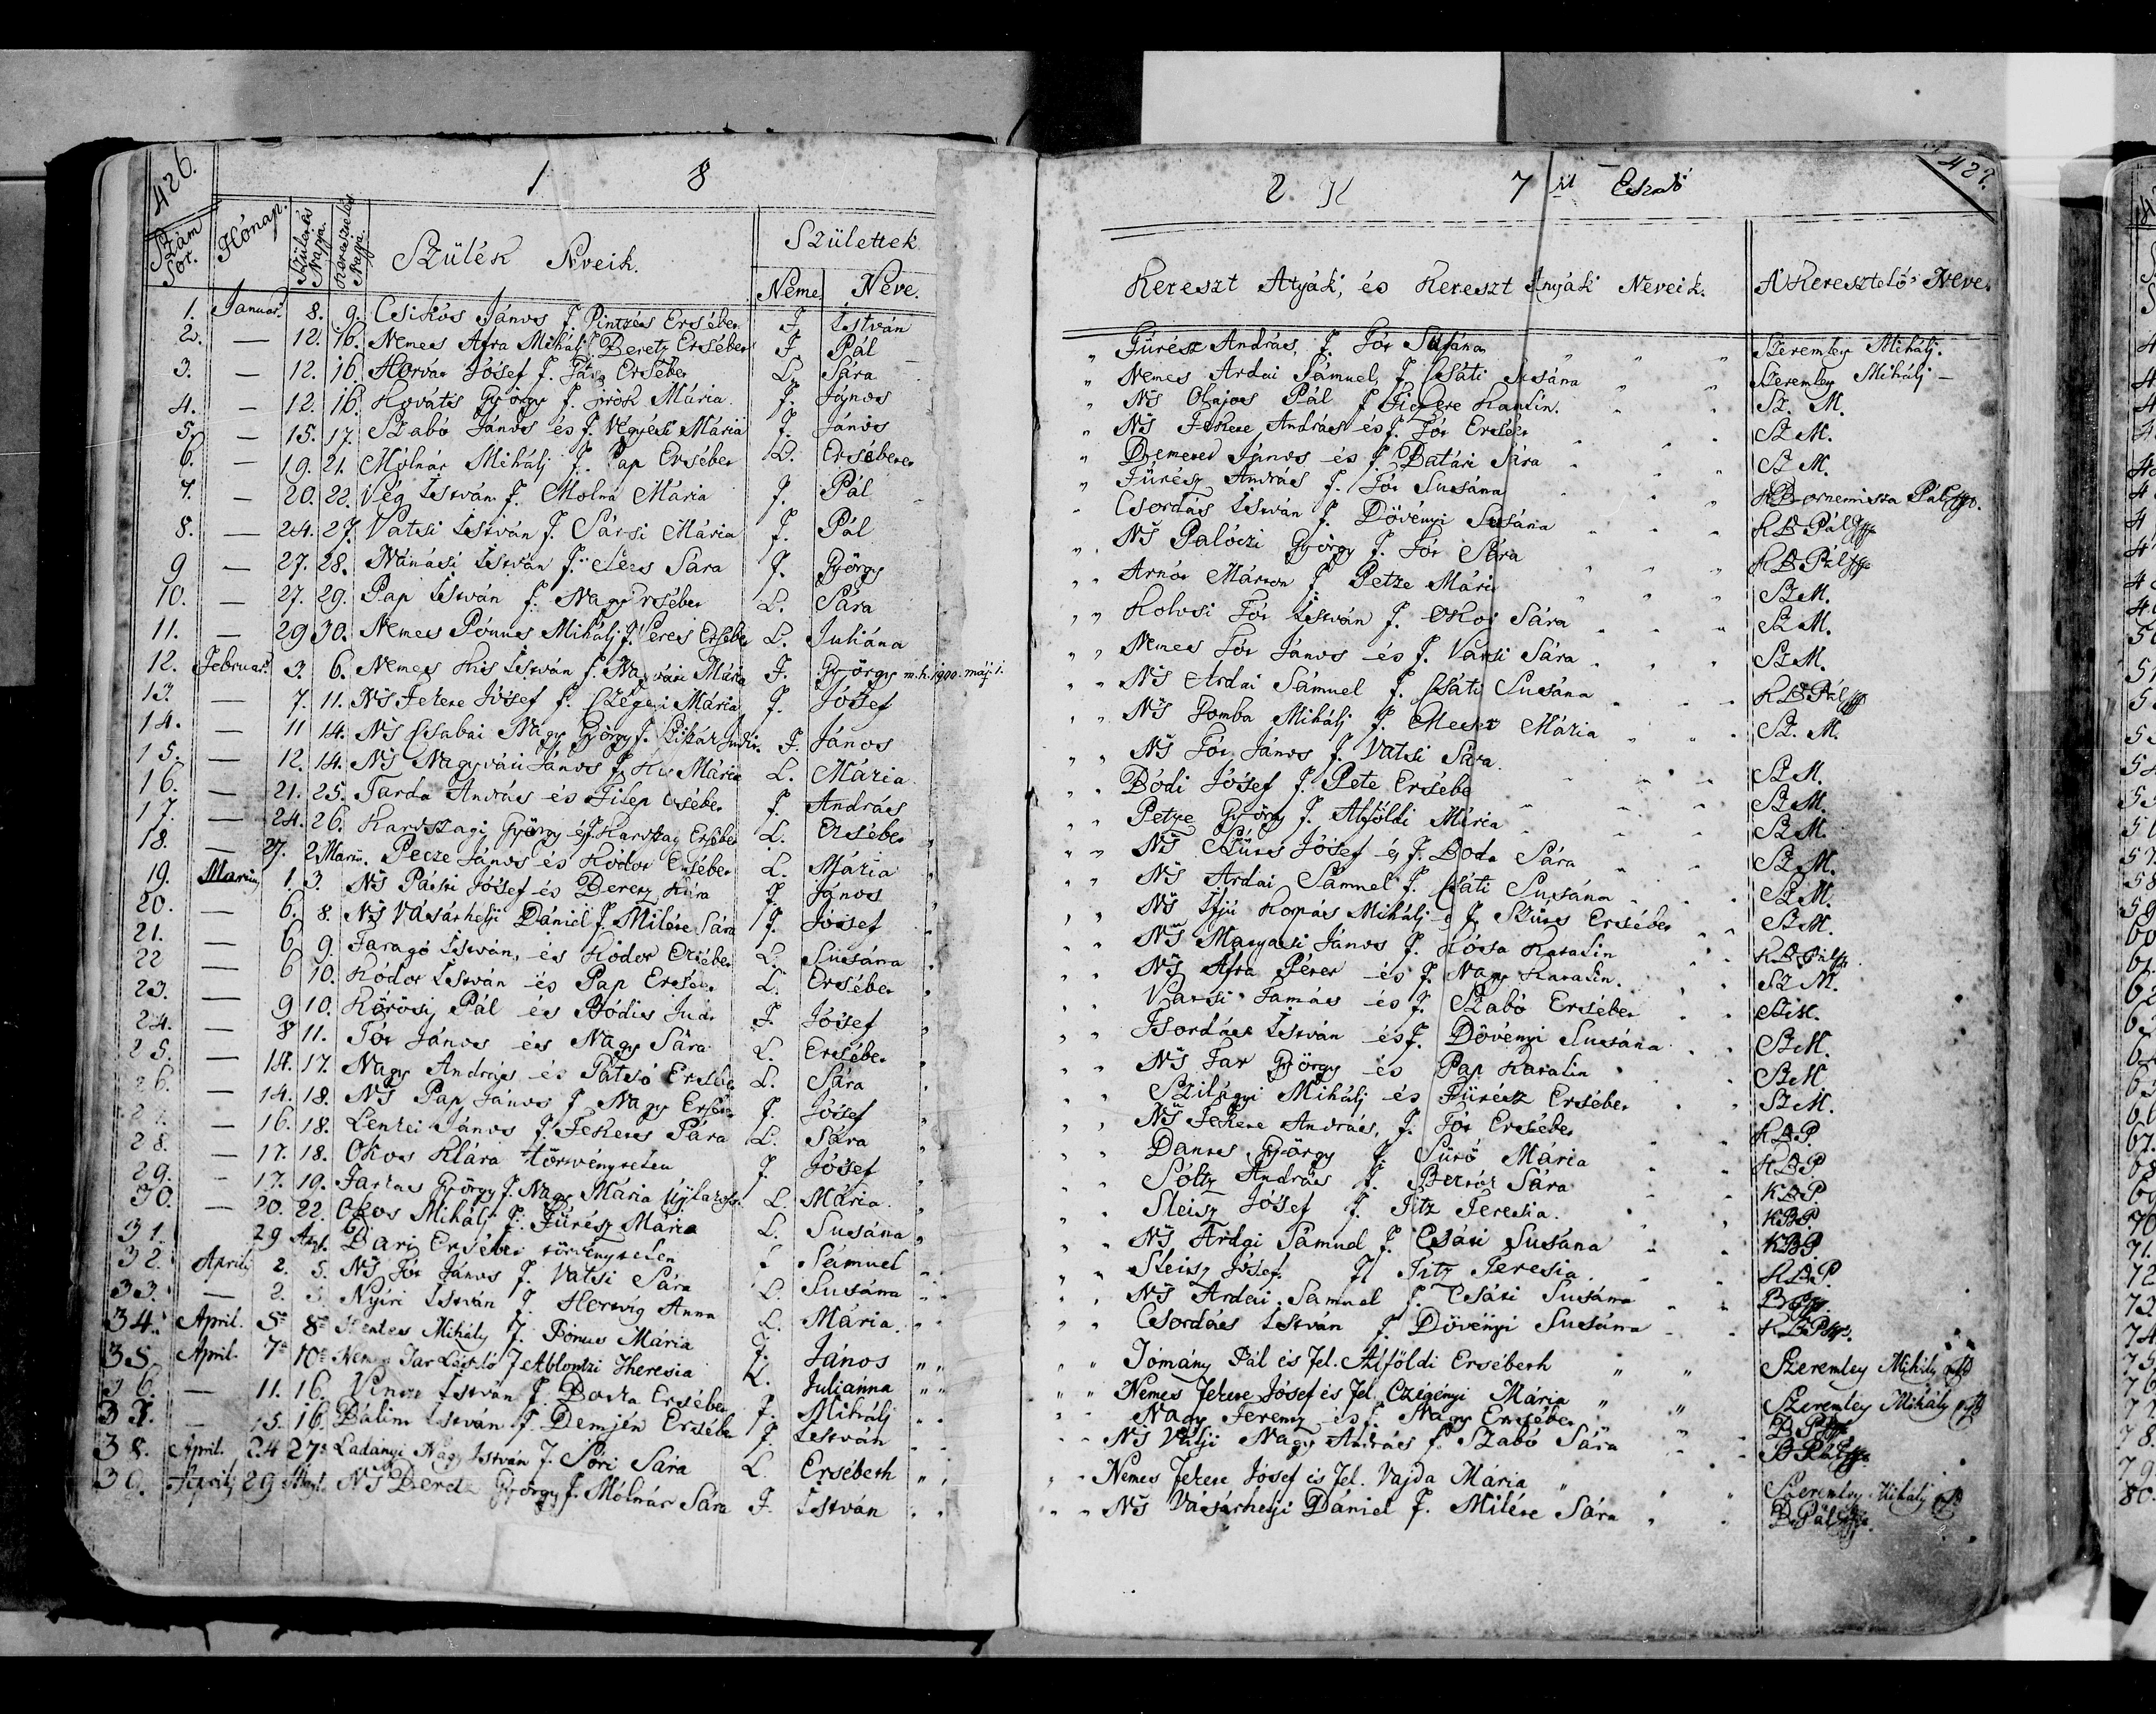 426.
1 8
Szám Sor.
Hónap.
Születés Napja.
Keresztelés Napja.
Szülék Neveik.
Születtek
Neme Neve.
1. Januar. 8. 9. Csikós János F. Pintzés Ersébet F. István
2. — 12. 16. Nemes Afra Mihálj F. Beretz Ersébet F. Pál
3. — 12. 16. Horvát Jósef F. Ersébet L. Sára
4. — 12. 16. Kováts György F. Mária F. János
5. — 15. 17. Szabó János és F. Végyedi Mária F. János
6. — 19. 21. Mólnár Mihálj F. Pap Ersébet L. Ersébet
7. — 20. 22. Vég István F. Molna Mária F. Pál
8. — 24. 27. Vatsi István F. Sársi Mária F. Pál
9 — 27. 28. Nánási István F. Sára F. György
10. — 27. 29. Pap István F. Nagy Ersébet L. Sára
11. — 29 30. Nemes Pónus Mihálj F. Veres Ersébe L. Juliána
12. Februar. 3. 6. Nemes Kis István F. Nagyvári Mária F. György m.h. 1900. máj. 1.
13. — 7. 11. Ns Fekete Jósef F. Mária F. Jósef
14. — 11 14. Ns Csabai Nagy György F. F. János
15. — 12. 14. Ns Nagyvári János F. Kis Mária L. Mária
16. — 21. 25. Tarda András és Filep Ersébet F. András
17. — 24. 26. Kardszagi György és F. Kardszag Ersébet L. Ersébet
18. — 27. 2 Mart. Petze János és Kódor Ersébet L. Mária
19. Martius 1. 3. Ns Pásti Jósef és Beretz Sára F. János
20. — 6. 8. Ns Vásárhelyi Dániel F. Miléte Sára F. Jósef
21. — 6 9. Faragó István, és Kódor Ersébet L. Susána
22 — 6 10. Kódor István és Pap Ersébet L. Ersébet
23. — 9 10. Körösij Pál és Bódis Judit F. Jósef
24. — 8 11. Tót János és Nagy Sára L. Ersébet
25. — 14. 17. Nagy András és Pátsó Ersébe L. Sára
26. — 14. 18. Ns Pap János F. Nagy Ersébet F. Jósef
27. — 16. 18. Lentei János F. Fekete Sára L. Sára
28. — 17. 18. Okos Klára törvénytelen F. Jósef
29. — 17. 19. Farkas György F. Nagy Mária L. Mária
30. — 20. 22. Okos Mihálj F. Fürész Mária L. Susána
31. 29 Apl. Barij Ersébet törvénytelen Sámuel
32. Aprilj 2. 5. Ns Tót János F. Vatsi Sára L. Susána
33. — 2. 5. Nyíri István F. Hertvig Anna L. Mária
34. April. 5 8 Kentes Mihály F. Bónus Mária F. János
35 April. 7 10 Nemes Tar László F. Ablontzi Theresia L. Juliánna
36. — 11. 16. Vincze István F. Barta Ersébet F. Mihálj
37. — 15. 16. Bálint István F. Demjén Ersébe F. István
38. April. 24 27 Ladányi Nagy István F. Póri Sára L. Ersébeth
39. Aprilj 29 Ns Beretz György F. Mólnár Sára F. István
427.
2. K 7 ik Eszt
Kereszt Atyák, és Kereszt Anyák Neveik. A Keresztelő Neve.
Fürész András, F. Tót Susána Szeremley Mihálj.
Nemes Ardai Sámuel, F. Csáti Susána Szeremley Mihálj
Ns Olajos Pál F. Fekete Katalin. Sz. M.
Ns Fekete András és F. Tót Ersébet Sz M.
Demeter János és F. Batári Sára Sz M.
Fürész András F. Tót Susána K Bornemisza Pál
Csordás István F. Dövényi Susána K B Pál
Ns Palóczi György F. Tót Sára K B Pál
Arnót Márton F. Petze Mária Sz M.
Kolosi Tót István F. Okos Sára Sz M.
Nemes Tót János és F. Vatsi Sára Sz M.
Ns Ardai Sámuel F. Csáti Susána K B Pál
Ns Gomba Mihálj F. Mária Sz. M.
Ns Tót János F. Vatsi Sára. Sz M.
Bódi Jósef F. Pete Ersébe Sz M.
Petze György F. Alföldi Mária Sz M.
Ns Szüts Jósef és F. Boda Sára Sz M.
Ns Ardai Sámuel F. Csáti Susána Sz M.
Ns Ifjú Kopács Mihálj és F. Szüts Ersébet Sz M.
Ns Magyasi János F. Kósa Katalin K B Pál
Ns Afra Péter és F. Nagy Katalin. Sz M.
Vatsi Tamás és F. Szabó Ersébet Sz M.
Tsordás István és F. Dövényi Susána Sz M.
Ns Tar György és Pap Katalin Sz M.
Szilágyi Mihálj és Fürész Ersébet Sz M.
Ns Fekete András, F. Tót Ersébet K B P.
Dantes György F. Sürö Mária K B P
Sóltz András F. Sára K B P.
Sleisz Jósef F. Titz Teresia. K B P.
Ns Ardai Sámuel F. Csáti Susána K B P.
Sleisz Jósef. F. Titz Teresia K B P.
Ns Ardai Samuel F. Csáti Susána B P
Csordás István F. Dövényi Susána K B P
Tómány Pál és Fel. Alföldi Ersébeth Szeremley Mihály
Nemes Fekete Jósef és Fel. Czigényi Mária Szeremley Mihály
Nagy Ferentz és F. Nagy Ersébet B P
Ns Vátji Nagy András F. Szabó Sára B Pál
Nemes Fekete Jósef és Fel. Vajda Mária Szeremley Mihály
Ns Vasárhelyi Dániel F. Miléte Sára B Pál